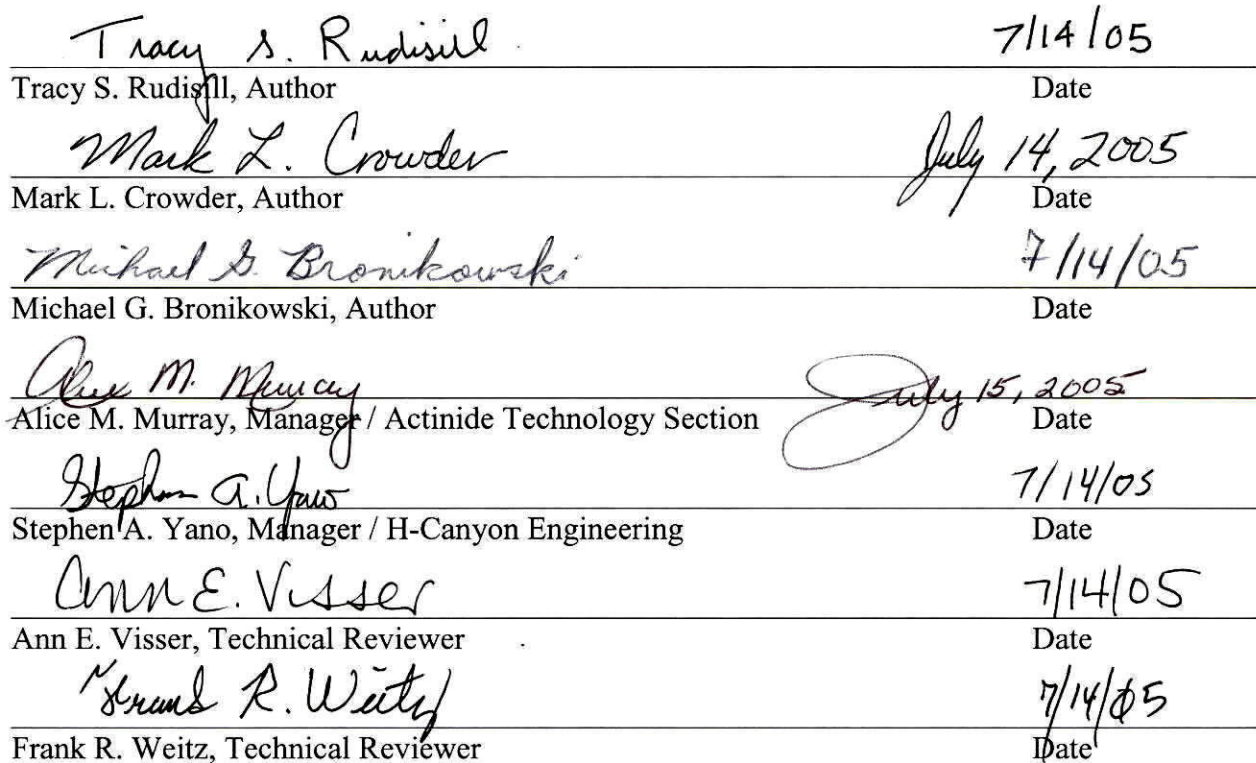 Tracy S. Rudisill 7/14/05
Tracy S. Rudisill, Author Date
Mark L. Crowder July 14, 2005
Mark L. Crowder, Author Date
Michael G. Bronikowski 7/14/05
Michael G. Bronikowski, Author Date
Alice M. Murray July 15, 2005
Alice M. Murray, Manager / Actinide Technology Section Date
Stephen A. Yano 7/14/05
Stephen A. Yano, Manager / H-Canyon Engineering Date
Ann E. Visser 7/14/05
Ann E. Visser, Technical Reviewer Date
Frank R. Weitz 7/14/05
Frank R. Weitz, Technical Reviewer Date